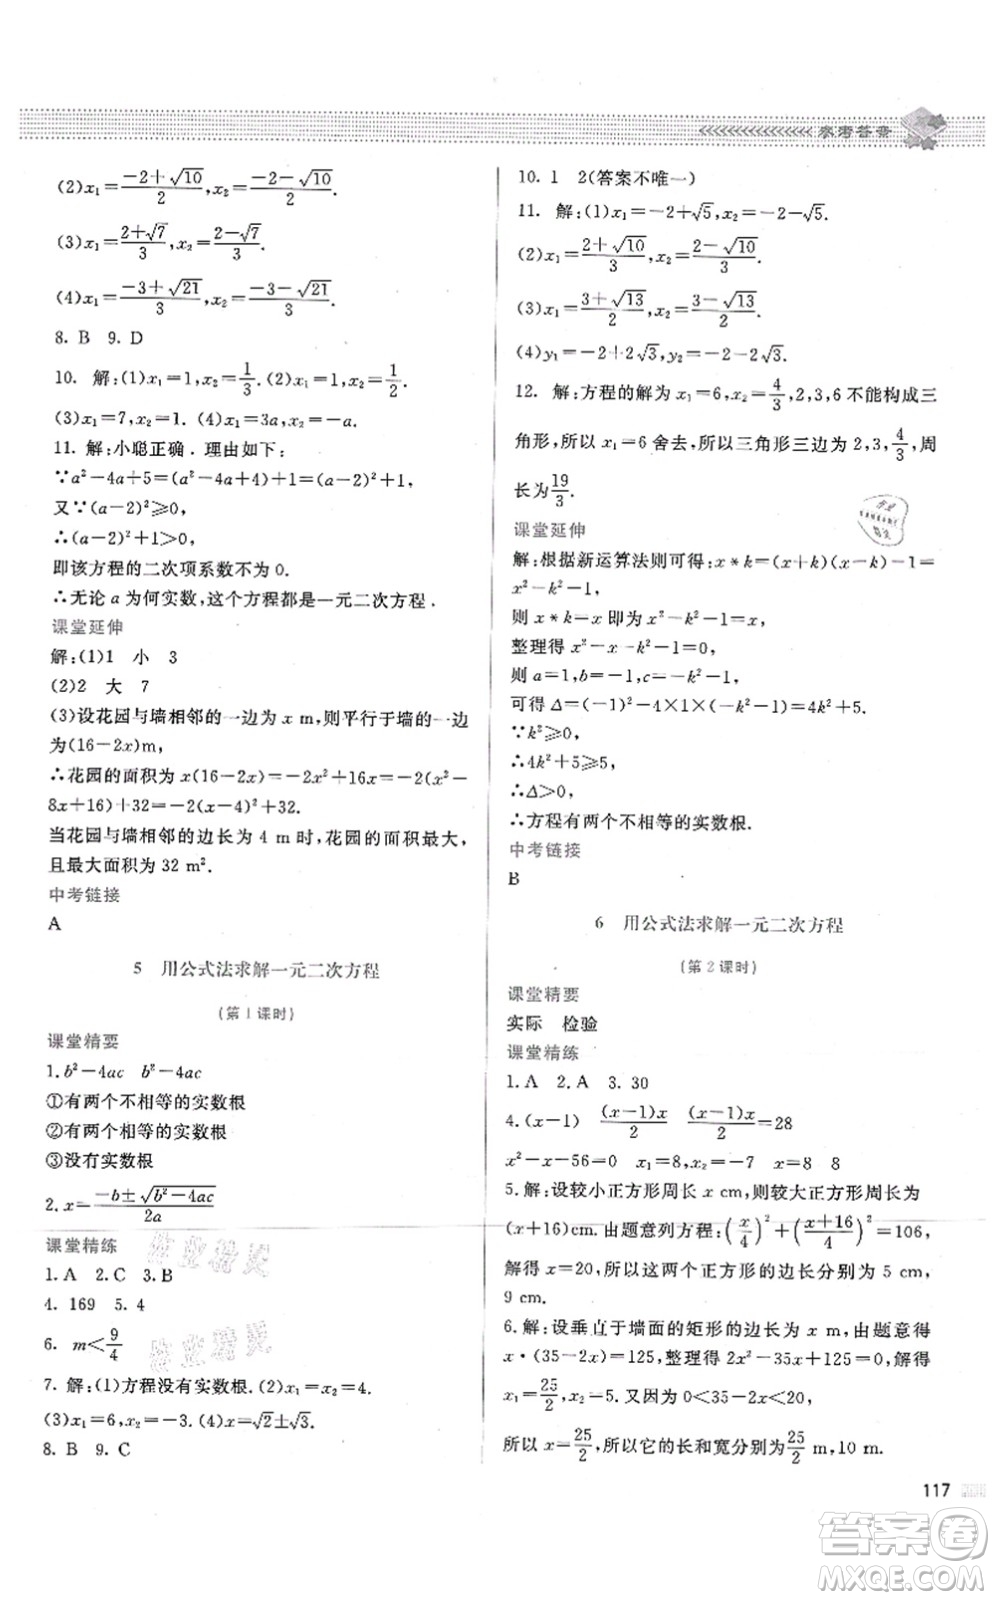 参考答案
(2)x₁=(-2+√10)/2,x₂=(-2-√10)/2.
(3)x₁=(2+√7)/3,x₂=(2-√7)/3.
(4)x₁=(-3+√21)/3,x₂=(-3-√21)/3.
8. B 9. D
10. 解:(1)x₁=1,x₂=1/3.(2)x₁=1,x₂=1/2.
(3)x₁=7,x₂=1. (4)x₁=3a,x₂=-a.
11. 解:小聪正确.理由如下:
∵a²-4a+5=(a²-4a+4)+1=(a-2)²+1,
又∵(a-2)²⩾0,
∴(a-2)²+1>0,
即该方程的二次项系数不为0.
∴无论a为何实数,这个方程都是一元二次方程.
课堂延伸
解:(1)1 小 3
(2)2 大 7
(3)设花园与墙相邻的一边为x m,则平行于墙的一边
为(16-2x)m,
∴花园的面积为x(16-2x)=-2x²+16x=-2(x²-
8x+16)+32=-2(x-4)²+32.
当花园与墙相邻的边长为4 m时,花园的面积最大,
且最大面积为32 m².
中考链接
A
5 用公式法求解一元二次方程
(第1课时)
课堂精要
1.b²-4ac b²-4ac
①有两个不相等的实数根
②有两个相等的实数根
③没有实数根
2.x=(-b±√(b²-4ac))/2a
课堂精练
1.A 2.C 3.B
4. 169 5. 4
6. m<9/4
7. 解:(1)方程没有实数根.(2)x₁=x₂=4.
(3)x₁=6,x₂=-1.(4)x=√2±√3.
8. B 9. C
10. 1 2(答案不唯一)
11. 解:(1)x₁=-2+√5,x₂=-2-√5.
(2)x₁=(2+√10)/3,x₂=(2-√10)/3.
(3)x₁=(3+√13)/2,x₂=(3-√13)/2.
(4)y₁=-2+2√3,y₂=-2-2√3.
12. 解:方程的解为x₁=6,x₂=4/3,2,3,6不能构成三
角形,所以x₁=6舍去,所以三角形三边为2,3,4/3,周
长为19/3.
课堂延伸
解:根据新运算法则可得:x*k=(x+k)(x-k)-1=
x²-k²-1,
则x*k=x即为x²-k²-1=x,
整理得x²-x-k²-1=0,
则a=1,b=-1,c=-k²-1,
可得Δ=(-1)²-4×1×(-k²-1)=4k²+5.
∵k²⩾0,
∴4k²+5⩾5,
∴Δ>0,
∴方程有两个不相等的实数根.
中考链接
B
6 用公式法求解一元二次方程
(第2课时)
课堂精要
实际 检验
课堂精练
1.A 2.A 3. 30
4.(x-1) (x-1)x/2 (x-1)x/2=28
x²-x-56=0 x₁=8,x₂=-7 8 8
5.解:设较小正方形周长x cm,则较大正方形周长为
(x+16)cm. 由题意列方程:(x/4)²+((x+16)/4)²=106,
解得x=20,所以这两个正方形的边长分别为5 cm,
9 cm.
6.解:设垂直于墙面的矩形的边长为x m,由题意得
x·(35-2x)=125,整理得2x²-35x+125=0,解得
x₁=25/2,x₂=5. 又因为0<35-2x<20,
所以x=25/2,所以它的长和宽分别为25/2 m,10 m.
117
答案卷
MXQE.COM